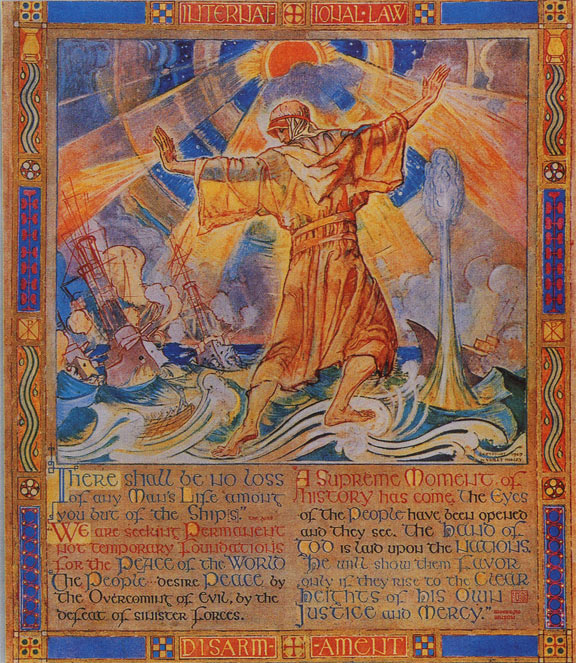 INTERNAT-IONAL·LAW
"There shall be no loss
of any Man's Life among
you but of the Ship(s)."
We are seeking Permanent
not temporary foundations
for the Peace of the World
"The People desire Peace by
the Overcoming of Evil, by the
defeat of sinister forces.
A Supreme Moment of
history has come. The Eyes
of the People have been opened
and they see. The hand of
God is laid upon the Nations.
He will show them favor
only if they rise to the Clear
Heights of his own
Justice and Mercy."
WOODROW
WILSON
DISARM-AMENT